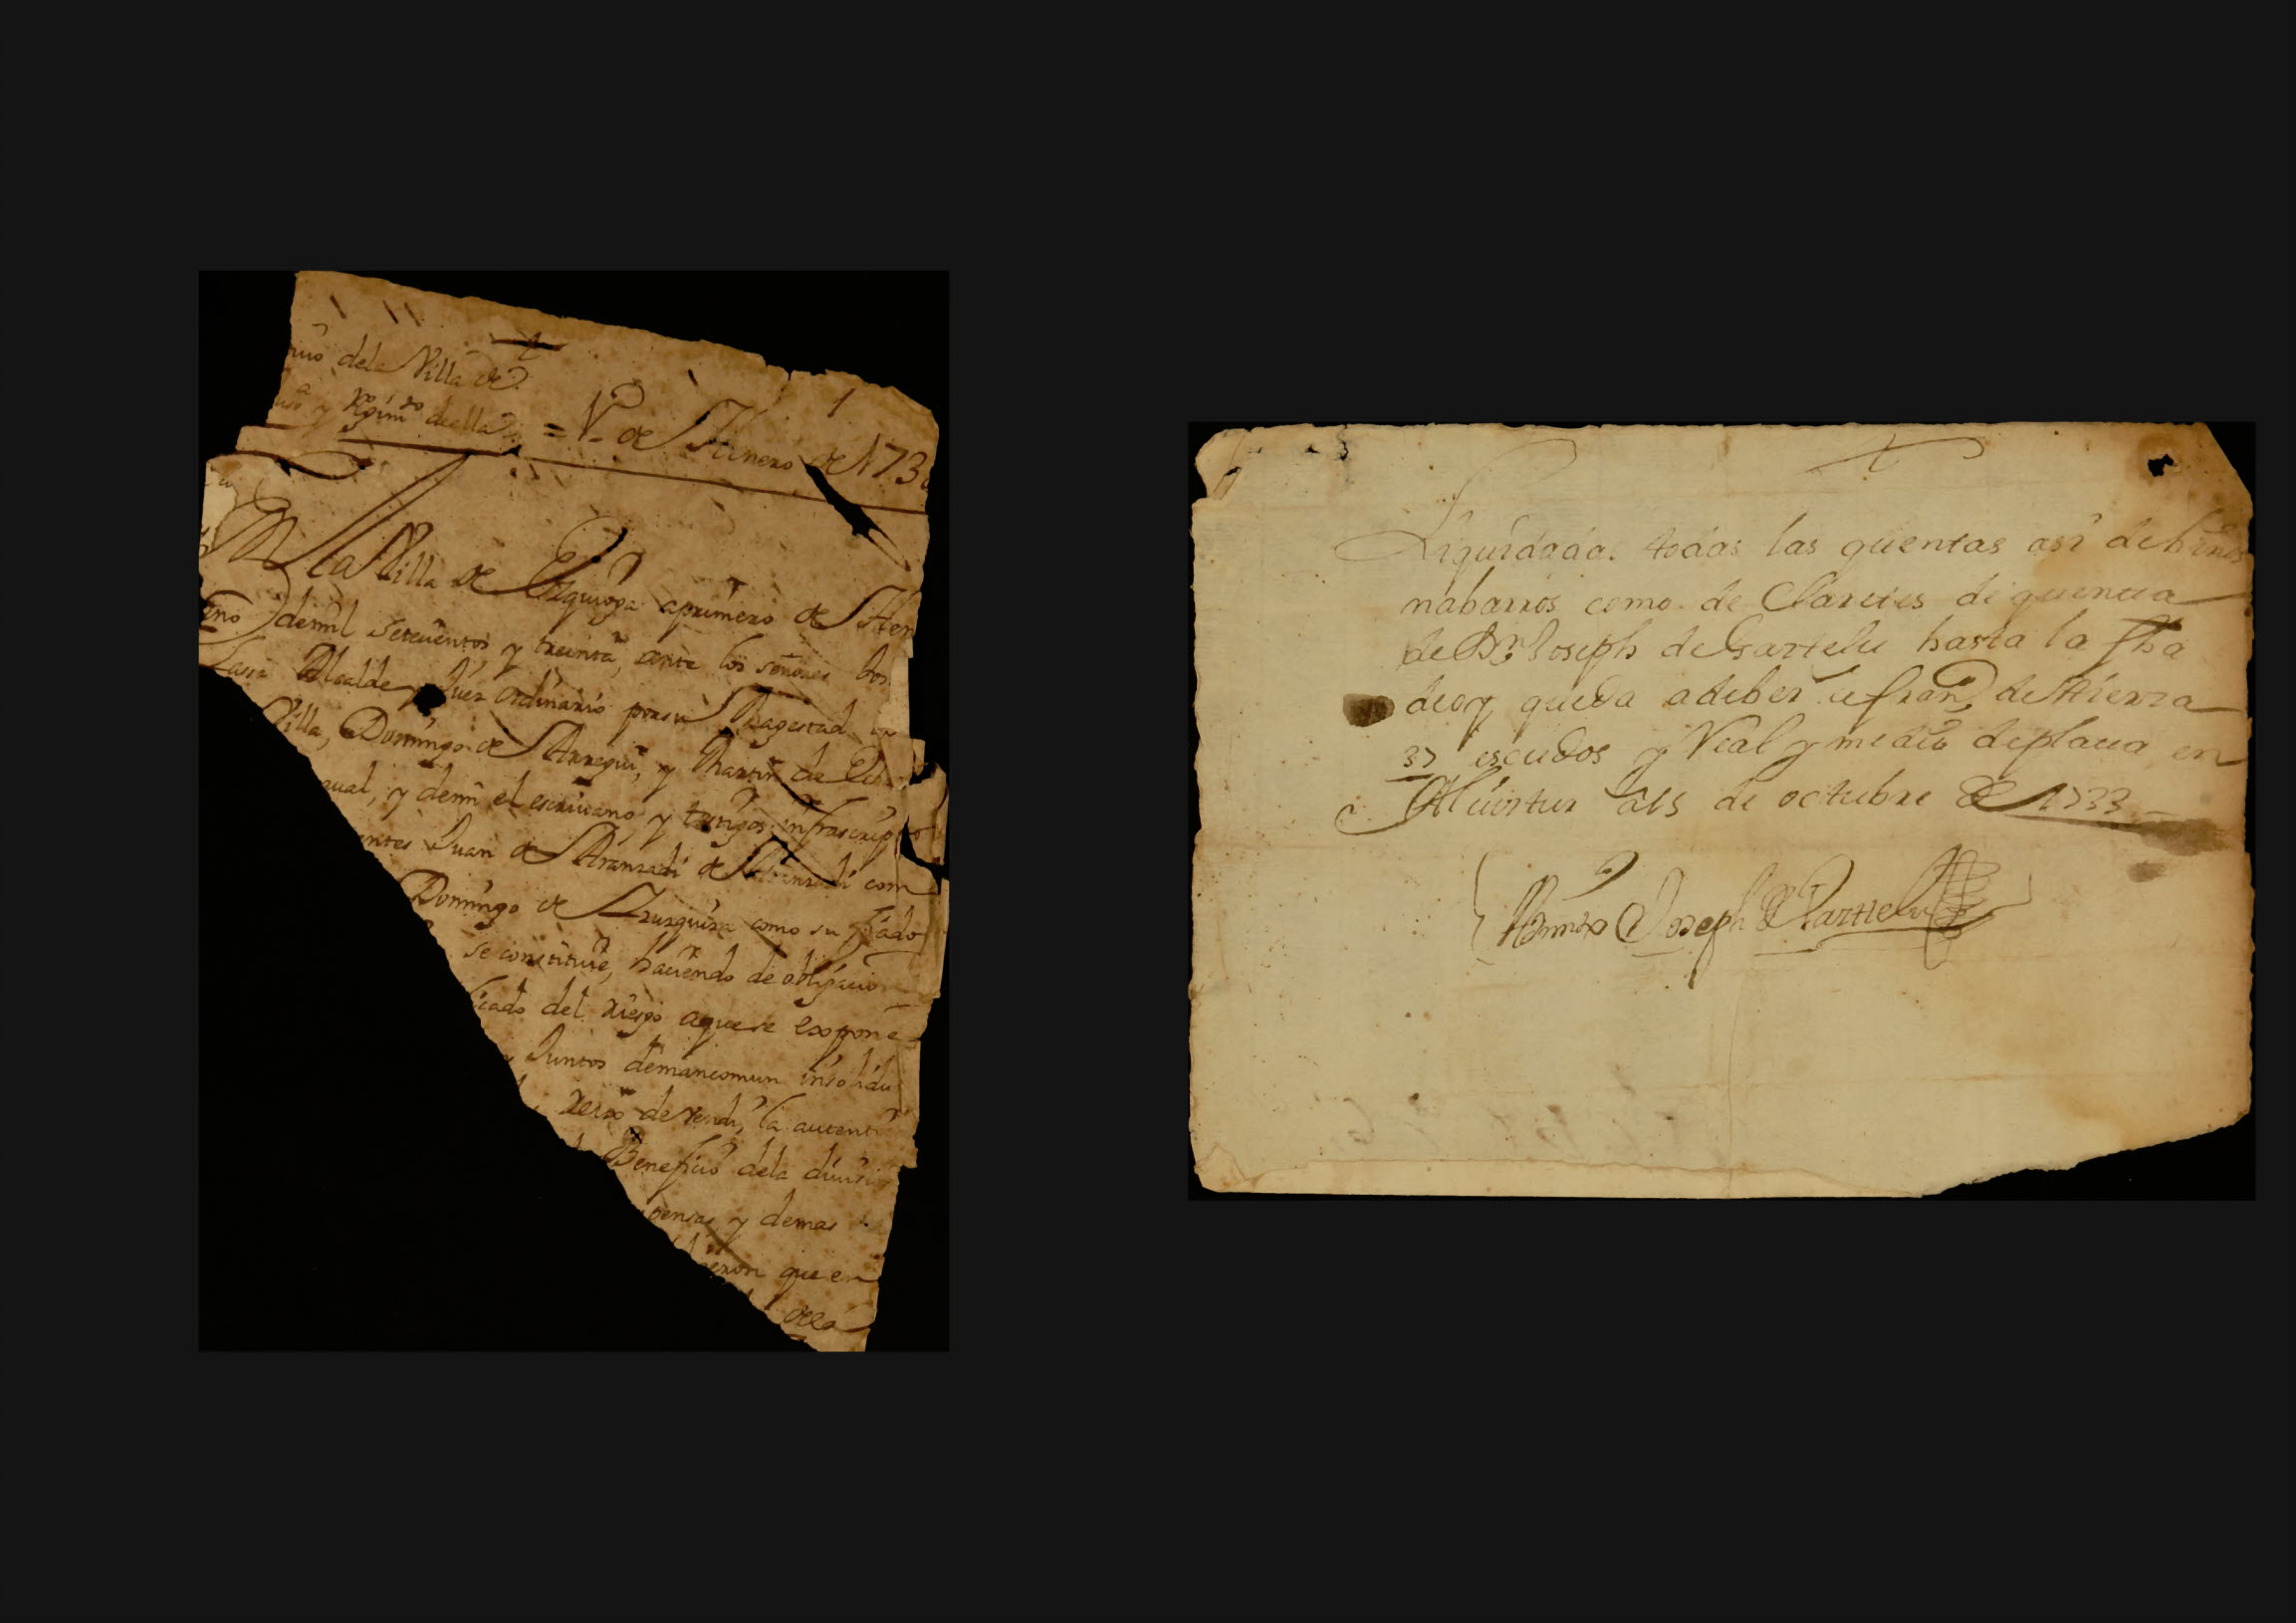 dela Villa de
y Regimto della = 1º de Henero de 173
En la Villa de Ezquioga aprimero de Hen
demil setecientos y treinta, ante los señores
Alcalde y Juez ordinario por su Magestad
Villa, Domingo de Arregui, y Martin de
qual, y demi el escriuano y testigos infrascrip
Juan de Aranzadi de com
Domingo de como su fiado
se constituie, haciendo de obligacio
del riesgo aquese expone
y Juntos demancomun insolidu
de vendi, la autent
Beneficio dela diuisi
y demas
que en
della
Liquidadas todas las quentas asi de binos
nabarros como de Claretes di quencia
de Dn Joseph de Gartelu hasta la fha
deoy queda adeber de Hierza
37 escudos y Real y medio deplata en
Albistur a 15 de octubre de 1733
Joseph de Gartelu